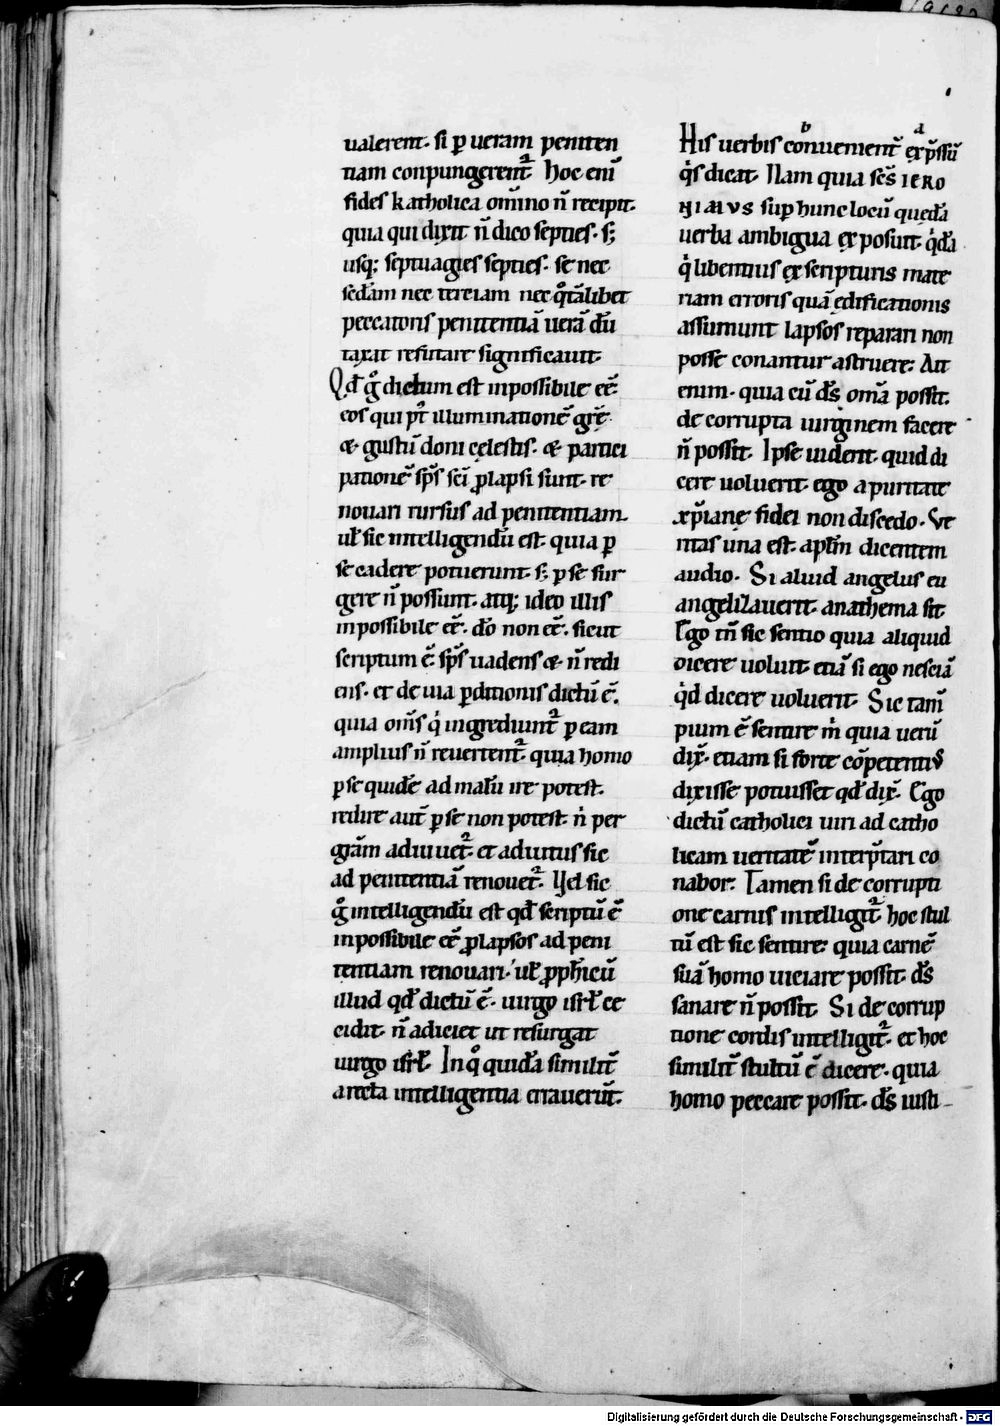 ualerent. si ꝑ ueram peniten
tiam conpungerent᷑. hoc eni᷑
fides katholica om̄ino n̄ recipit.
quia qui dixit n̄ dico septies. sꝫ
usqꝫ septuagies septies. se nec
scdam nec terciam nec qͦtālibet
peccatoris penitentiā uerā du᷑
taxat refutare significauit.
Qd̄ gͦ dictum est inpossibile ēē
eos qui pᷤt illuminationē gr̄ē
& gustū doni cęlestis. & partici
pationē sp̄s sc̄i ꝓlapsi sunt. re
nouari rursus ad penitentiam.
ut̄ sic intelligendū est. quia ꝑ
se cadere potuerunt. sꝫ ꝑ se sur
gere n̄ possunt. atqꝫ ideo illis
inpossibile ēē. dō non ēē. sicut
scriptum ē sp̄s uadens & n̄ redi
ens. et de uia ꝑditionis dictū ē.
quia om̄s qͥ ingrediunt᷑ ꝑ eam
amplius n̄ reuertent᷑. quia homo
ꝑ se quidē ad malū ire potest.
redire aut̄ ꝑ se non potest. n̄ per
gr̄am adiuuet᷑. et adiutus sic
ad penitentiā renouet᷑. Vel sic
gͦ intelligendū est qd̄ scriptū ē
inpossibile ēē ꝓlapsos ad peni
tentiam renouari. ut̄ ꝓph̄icū
illud qd̄ dictū ē. uirgo isrt̄ ce
cidit. n̄ adiciet ut resurgat
uirgo isrt̄. In qͦ quidā similit᷑
a recta intelligentia errauerūt.
His uerbis conuenient᷑ exp̄ssū
b a
qͥs dicat. Nam quia sc̄s IERO
NIMVS suꝑ hunc locū quędā
uerba ambigua exposuit. qͥdā
qͥ libentius ex scripturis mate
riam erroris quā ędificationis
assumunt lapsos reparari non
posse conantur astruere: Ait
enim. quia cū d̄s om̄a possit.
de corrupta uirginem facere
n̄ possit. Ipse uiderit. quid di
cere uoluerit. ego a puritate
xp̄ianę fidei non discedo. Ve
ritas una est. apl̄m dicentem
audio. Si aliud angelus eu
angelizauerit. anathema sit
Ego tn̄ sic sentio quia aliquid
dicere uoluit. etiā si ego nesciā
qͥd dicere uoluerit. Sic tam̄
pium ē sentire m̄ quia uerū
dix̄. etiam si forte cōpetentiꝰ
dixisse potuisset qd̄ dix̄. Ego
dictū catholici uiri ad catho
licam ueritatē interp̄tari co
nabor: Tamen si de corrupti
one carnis intelligit᷑ hoc stul
tū est sic sentire: quia carnē
suā homo uiciare possit. d̄s
sanare n̄ possit. Si de corrup
tione cordis intelligit᷑. et hoc
similit᷑ stultū ē dicere. quia
homo peccare possit. d̄s iusti
Digitalisierung gefördert durch die Deutsche Forschungsgemeinschaft - DFG